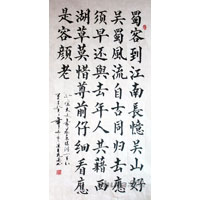 蜀客到江南長憶吳山好
吳蜀風流自古同歸去應
須早還與去年人共藉西
湖草莫惜尊前仔細看應
是容顏老